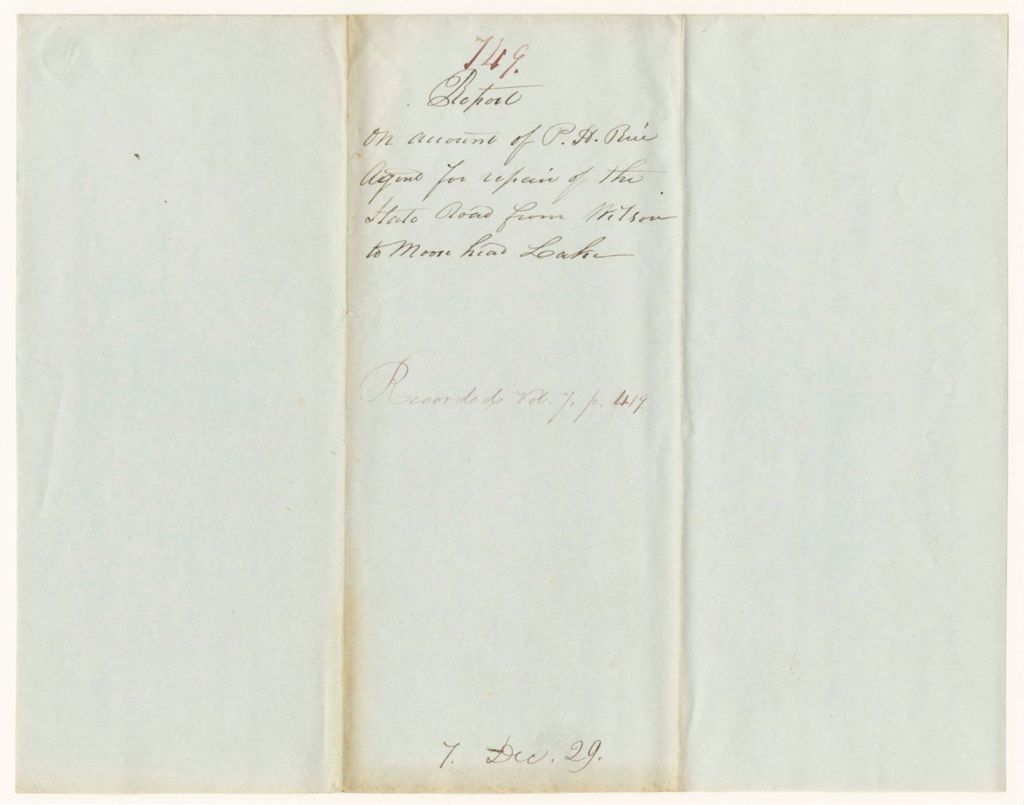 749.
Report
On account of P. H. Rice
Agent for repair of the
State Road from Wilson
to Moose head Lake
Recorded Vol. 7. p. 419
7. Dec. 29.